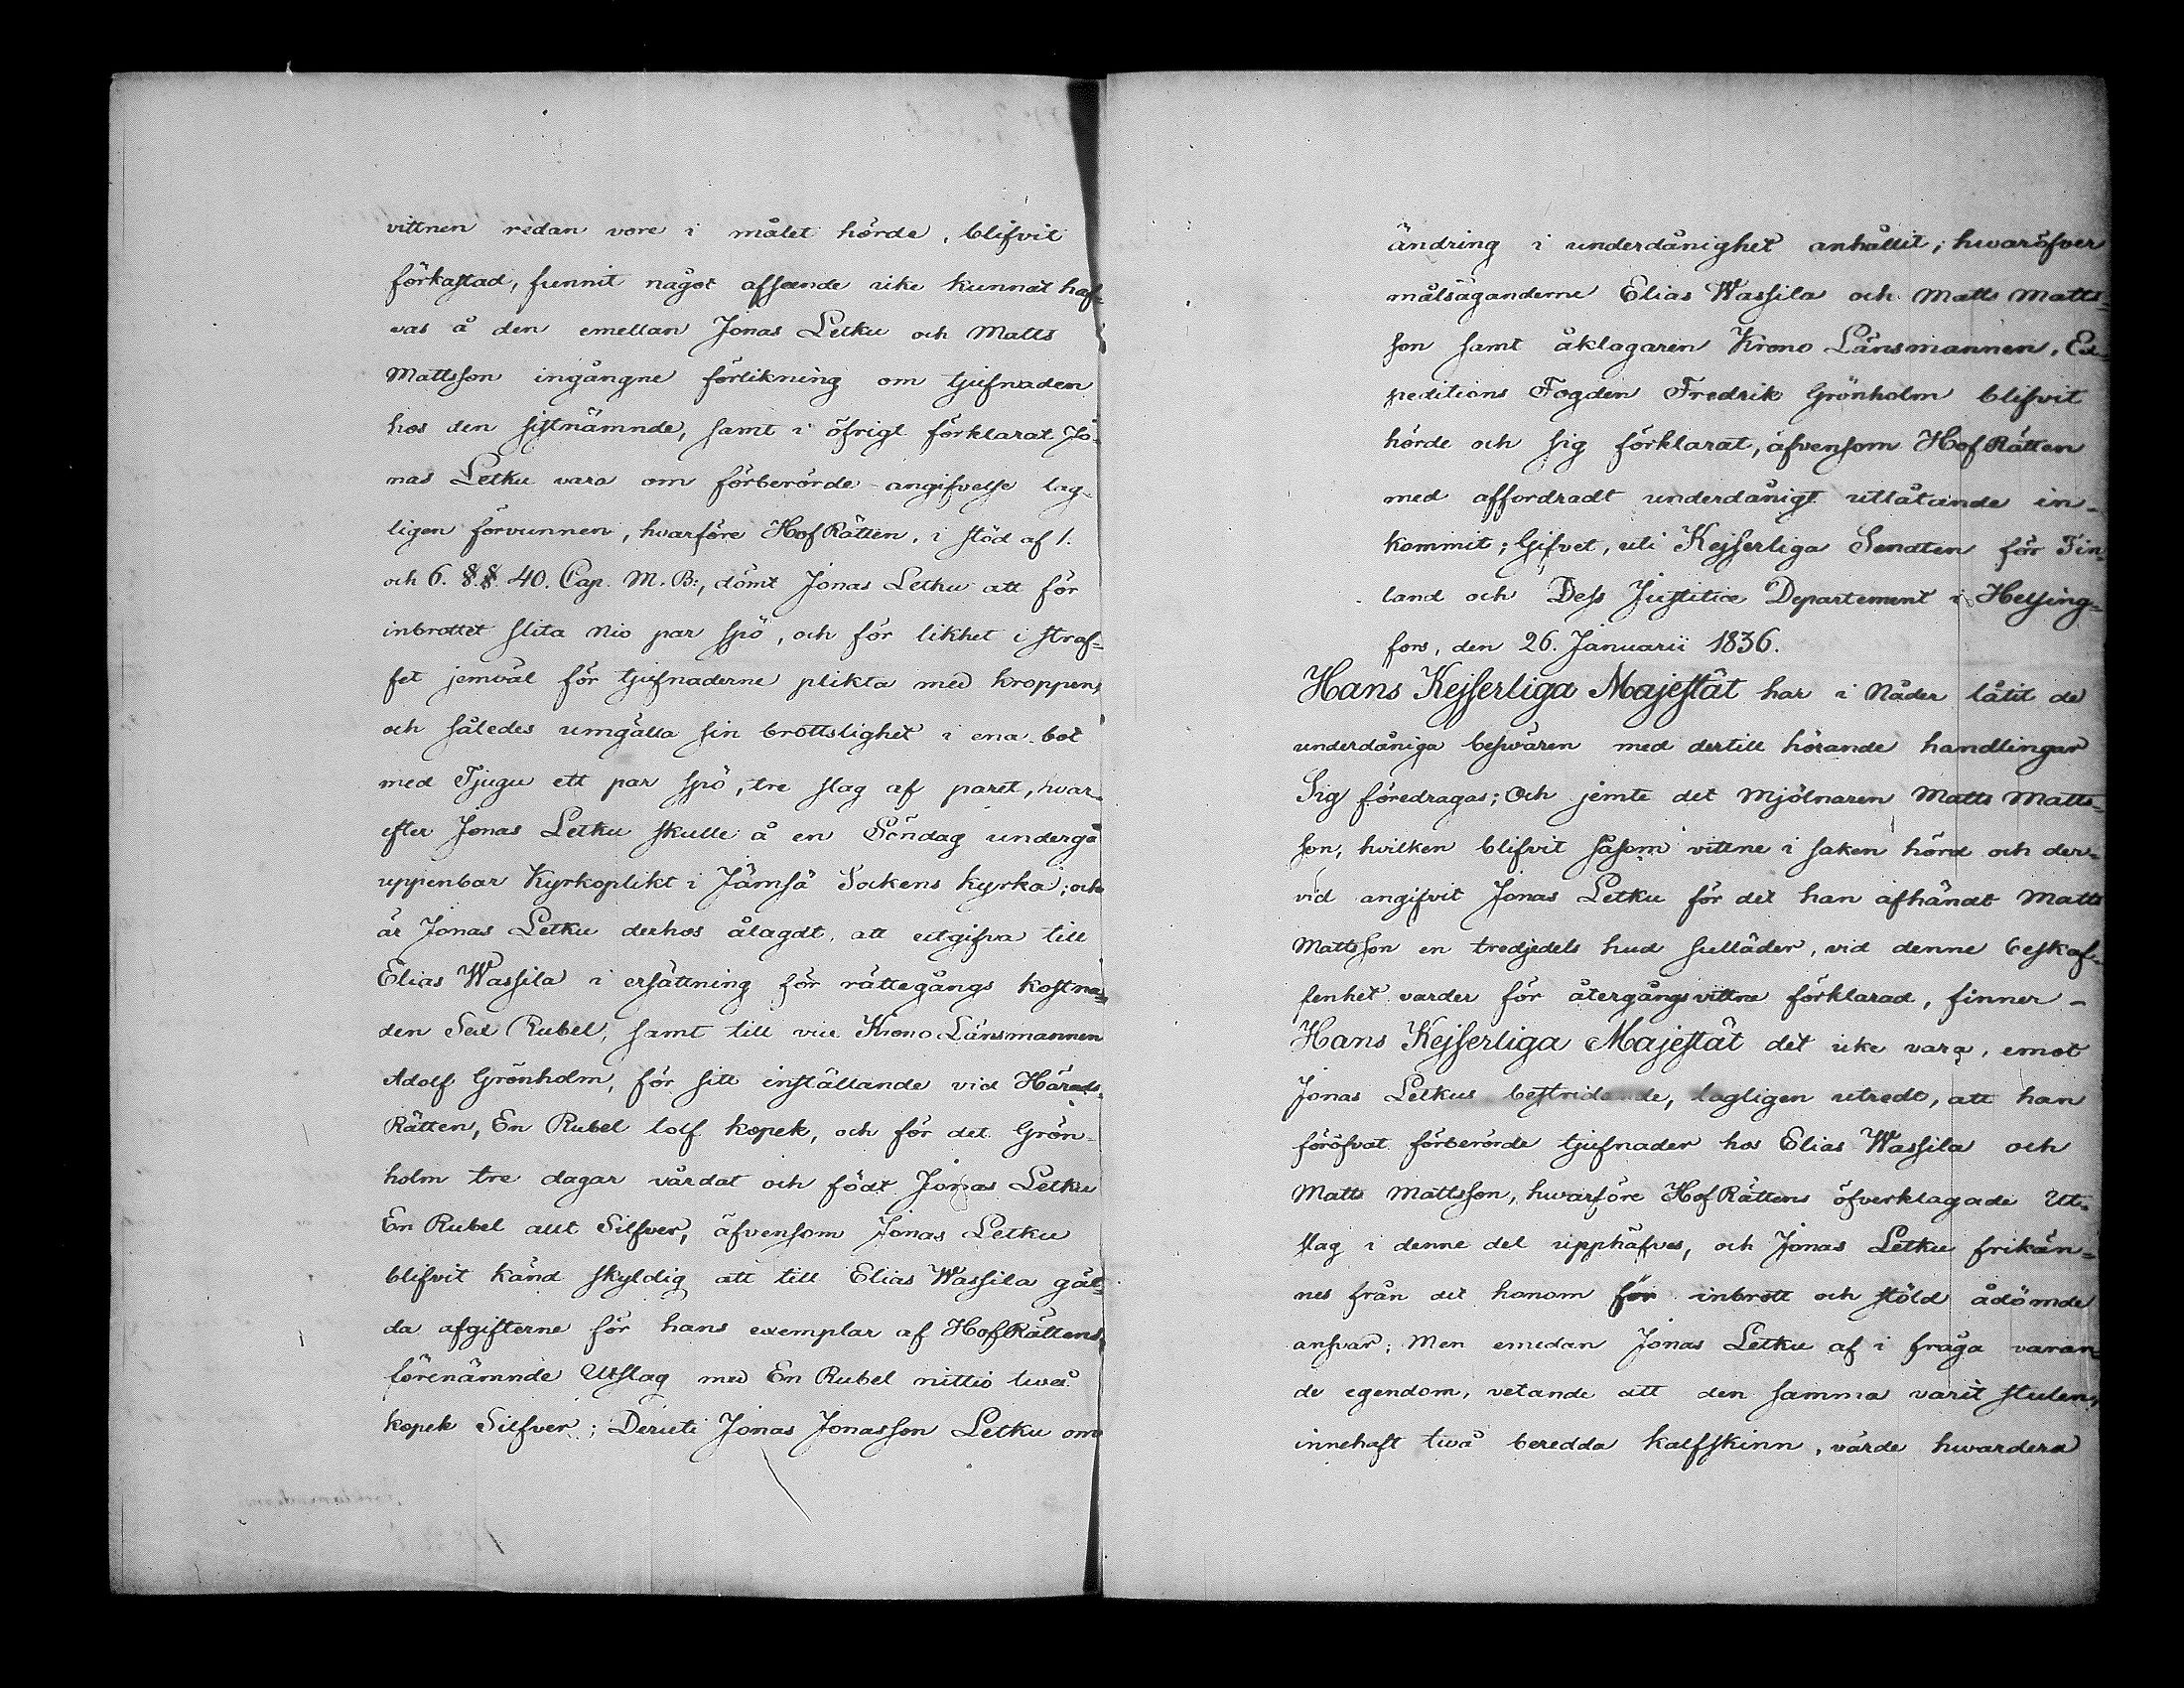 vittnen redan vore i målet hörde, blifvit
förkastad, funnit något afseende icke kunnat haf-
vas å den emellan Jonas Letku och Matts
Mattsson ingångne förlikning om tjufnaden
hos den sistnämnde, samt i öfrigt förklarat Jo-
nas Letku vara om förberörde angifvelse lag-
ligen förvunnen, hvarföre HofRätten, i stöd af 1.
och 6. §§ 40. Cap. M. B:, dömt Jonas Letku att för
inbrottet slita Nio par spö, och för likhet i straf-
fet jemväl för tjufnaderne plikta med kroppen,
och således umgälla sin brottslighet i ena bot
med Tjugu ett par spö, tre slag af paret, hvar-
efter Jonas Letku skulle å en Söndag undergå
uppenbar Kyrkoplikt i Jämsä Sockens kyrka; och
är Jonas Letku derhos ålagdt, att utgifva till
Elias Wassila i ersättning för rättegångs kostna-
den Sex Rubel, samt till vice Krono Länsmannen
Adolf Grönholm, för sitt inställande vid Härads
Rätten, En Rubel tolf kopek, och för det Grön-
holm tre dagar vårdat och födt Jonas Letku
En Rubel allt Silfver, äfvensom Jonas Letku
blifvit känd skyldig att till Elias Wassila gäl-
da afgifterne för hans exemplar af HofRättens
förenämnde Utslag med En Rubel nittio twå
kopek Silfver; Deruti Jonas Jonasson Letku om
ändring i underdånighet anhållit; hwaröfver
målsäganderne Elias Wassila och Matts Matts-
son samt åklagaren Krono Länsmannen, Ex-
peditions Fogden Fredrik Grönholm blifvit
hörde och sig förklarat, äfvensom HofRätten
med affordradt underdånigt utlåtande in-
kommit; Gifvet, uti Kejserliga Senaten för Fin-
land och Dess Justitiæ Departement i Helsing-
fors, den 26. Januarii 1836.
Hans Kejserliga Majestät har i Nåder låtit de
underdåniga besvären med dertill hörande handlingar
Sig föredragas; Och jemte det Mjölnaren Matts Matts-
son, hvilken blifvit såsom vittne i saken hörd och der-
vid angifvit Jonas Letku för det han afhändt Matts
Mattsson en tredjedels hud sulläder, vid denne beskaf-
fenhet varder för återgångsvittne förklarad, finner -
Hans Kejserliga Majestät det icke vara, emot
Jonas Letkus bestridande, lagligen utredt, att han
föröfvat förberörde tjufnader hos Elias Wassila och
Matts Mattsson, hwarföre HofRättens öfverklagade Ut-
slag i denne del upphäfves, och Jonas Letku frikän-
nes från det honom för inbrott och stöld ådömde
ansvar; Men emedan Jonas Letku af i fråga varan-
de egendom, vetande att den samma varit stulen,
innehaft twå beredda kalfskinn, värde hwardera